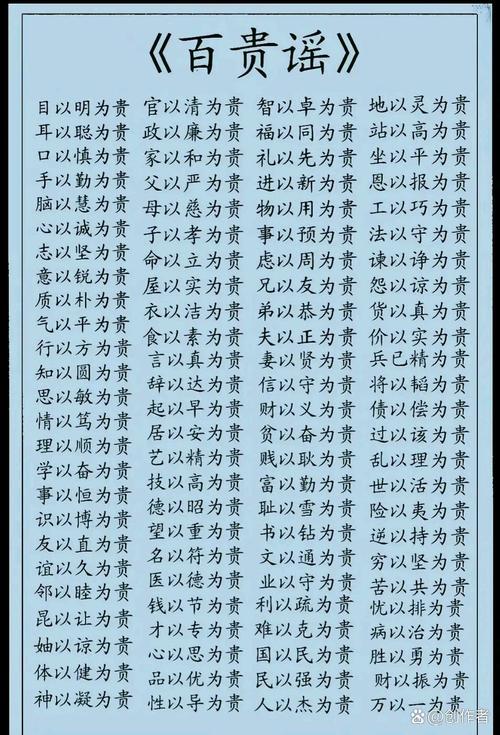 《百贵谣》
目以明为贵
耳以聪为贵
口以慎为贵
手以勤为贵
脑以慧为贵
心以诚为贵
志以坚为贵
意以锐为贵
质以朴为贵
气以平为贵
行以方为贵
知以圆为贵
思以敏为贵
情以笃为贵
理以顺为贵
学以奋为贵
事以恒为贵
识以博为贵
友以直为贵
谊以久为贵
邻以睦为贵
昆以让为贵
妯以谅为贵
体以健为贵
神以凝为贵
官以清为贵
政以廉为贵
家以和为贵
父以严为贵
母以慈为贵
子以孝为贵
命以立为贵
屋以实为贵
衣以洁为贵
食以素为贵
言以真为贵
辞以达为贵
起以早为贵
居以安为贵
艺以精为贵
技以高为贵
德以昭为贵
望以重为贵
名以符为贵
医以德为贵
钱以节为贵
才以专为贵
心以思为贵
品以优为贵
性以导为贵
智以卓为贵
福以同为贵
礼以先为贵
进以新为贵
物以用为贵
事以预为贵
虑以周为贵
兄以友为贵
弟以恭为贵
夫以正为贵
妻以贤为贵
信以守为贵
财以义为贵
贫以奋为贵
贱以耿为贵
富以勤为贵
耻以雪为贵
书以钻为贵
文以通为贵
业以守为贵
利以疏为贵
难以克为贵
国以民为贵
民以强为贵
人以杰为贵
地以灵为贵
站以高为贵
坐以平为贵
恩以报为贵
工以巧为贵
法以守为贵
谏以诤为贵
怨以谅为贵
货以真为贵
价以实为贵
兵已精为贵
将以韬为贵
债以偿为贵
过以该为贵
乱以理为贵
世以活为贵
险以夷为贵
逆以持为贵
穷以坚为贵
苦以共为贵
忧以排为贵
病以治为贵
胜以勇为贵
财以振为贵
万以一为贵
百家号/创作者